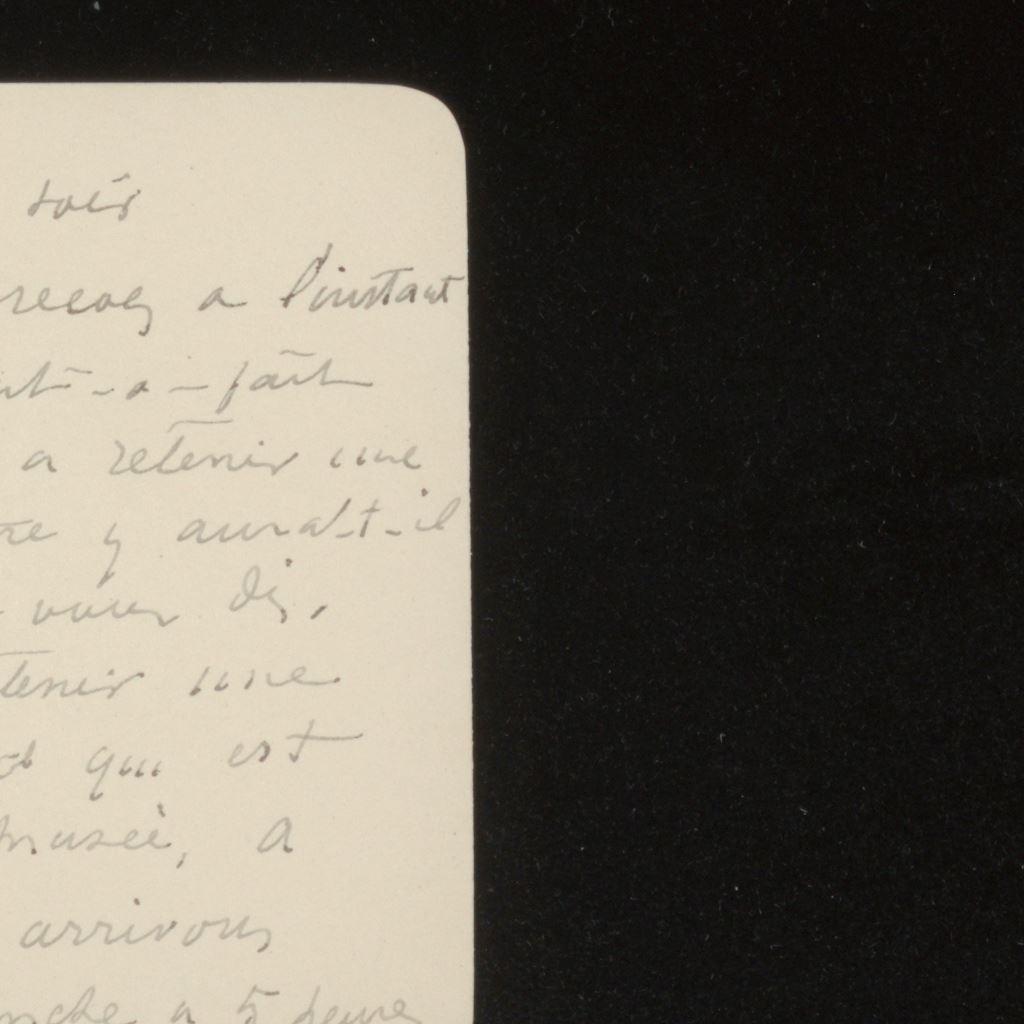 soir
recois a l'instant
-a-fait
a retenir une
y aura-t-il
vous dis,
tenir une
qui est
musée, a
arrivons
a 5 heures